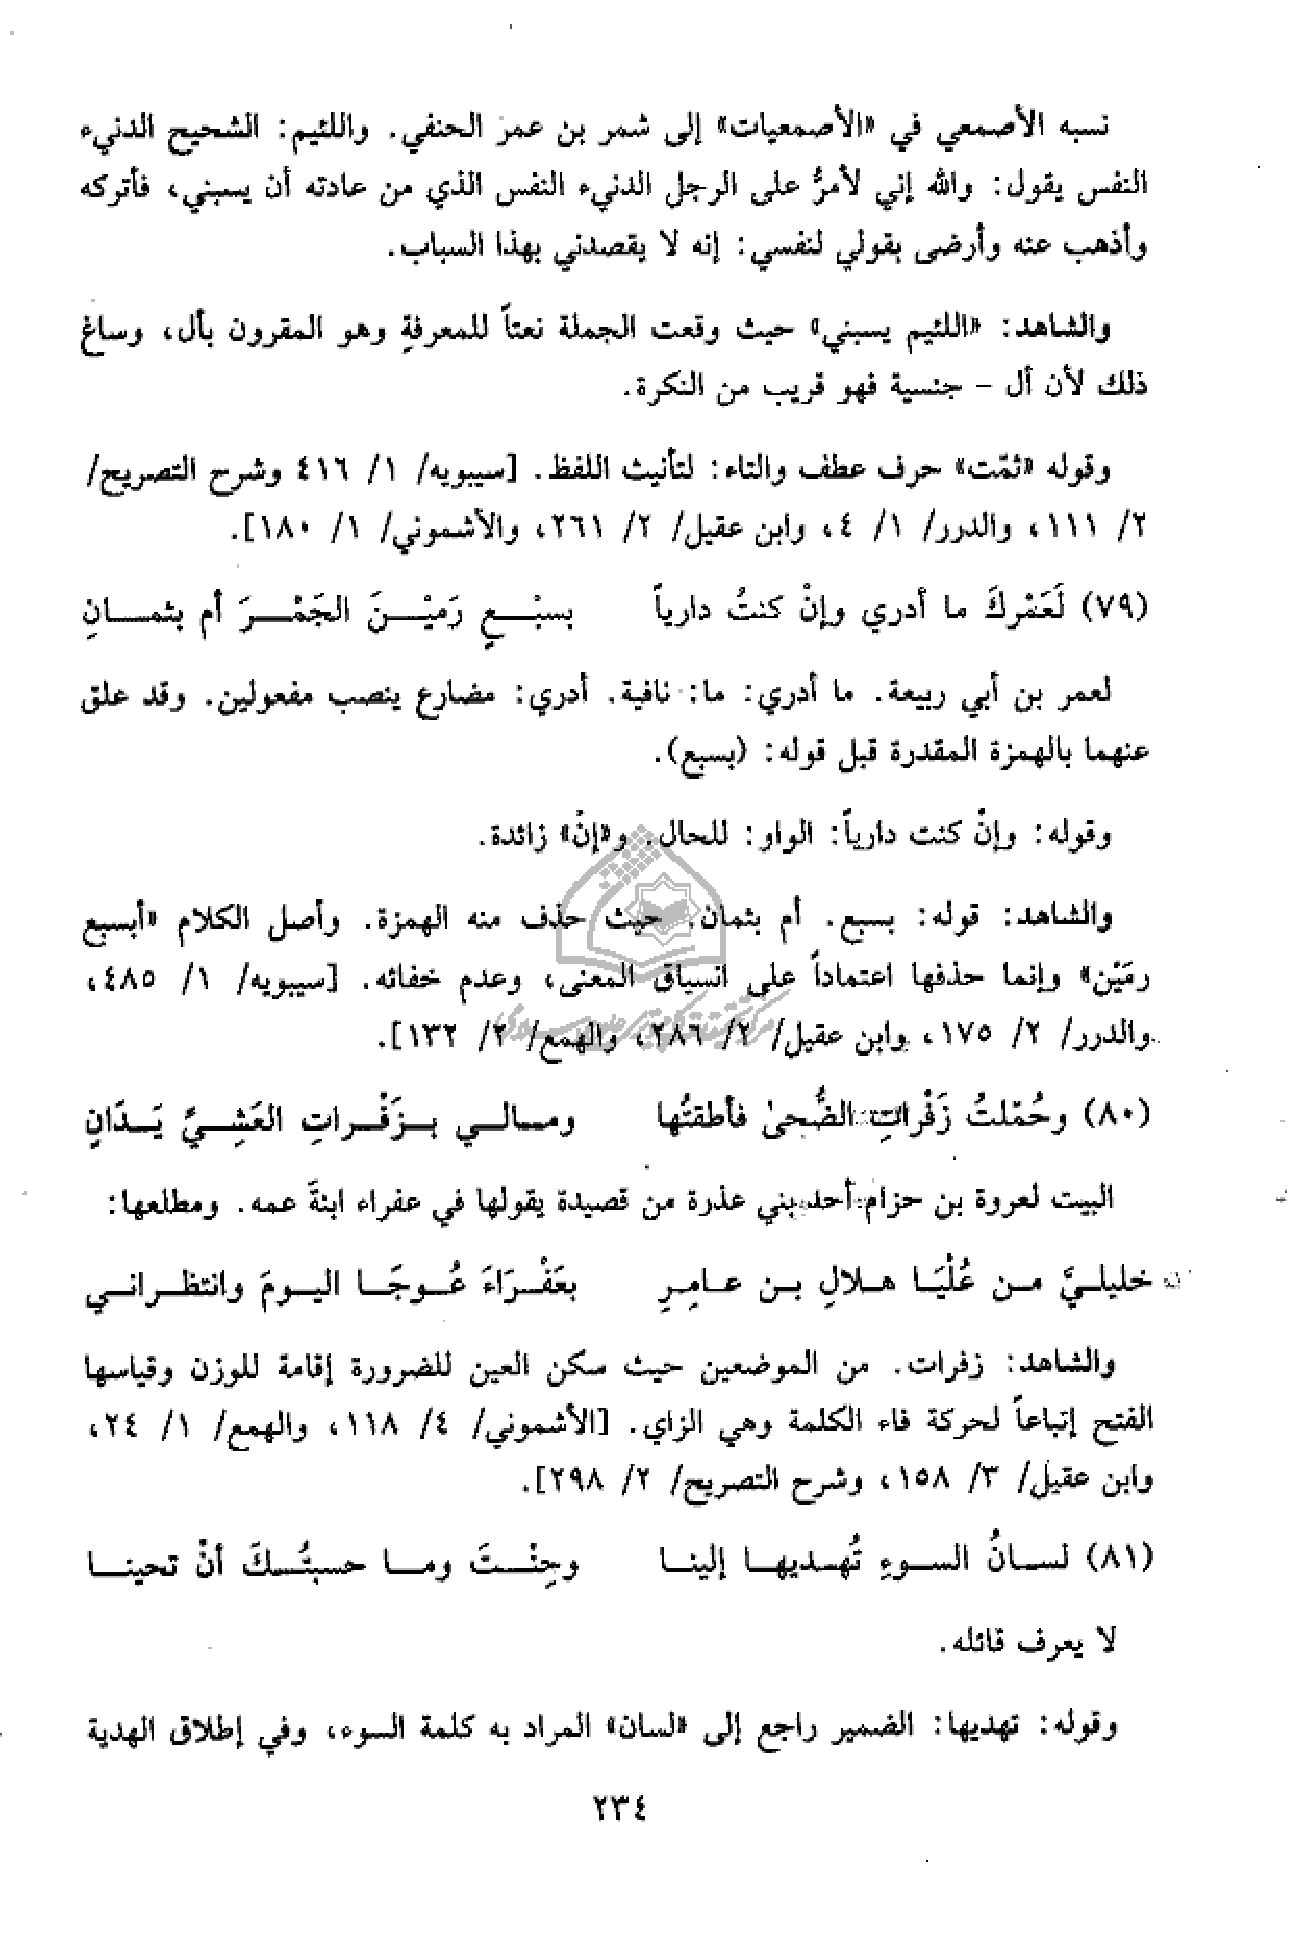 نسبه الأصمعي في «الأصمعيات» إلى شمر بن عمر الحنفي. واللئيم: الشحيح الدنيء
النفس يقول: والله إني لأمرُّ على الرجل الدنيء النفس الذي من عادته أن يسبني، فأتركه
وأذهب عنه وأرضى بقولي لنفسي: إنه لا يقصدني بهذا السباب.
والشاهد: «اللئيم يسبني» حيث وقعت الجملة نعتاً للمعرفةِ وهو المقرون بأل، وساغ
ذلك لأن أل – جنسية فهو قريب من النكرة.
وقوله «ثمّت» حرف عطف والتاء: لتأنيث اللفظ. [سيبويه/ ١/ ٤١٦ وشرح التصريح/
٢/ ١١١، والدرر/ ١/ ٤، وابن عقيل/ ٢/ ٢٦١، والأشموني/ ١/ ١٨٠].
(٧٩) لَعَمْركَ ما أدري وإنْ كنتُ دارياً بسبْـــعٍ رَميْـــنَ الجَمْـــرَ أم بثمـــانِ
لعمر بن أبي ربيعة. ما أدري: ما: نافية. أدري: مضارع ينصب مفعولين. وقد علق
عنهما بالهمزة المقدرة قبل قوله: (بسبع).
وقوله: وإنْ كنت دارياً: الواو: للحال. و«إنْ» زائدة.
والشاهد: قوله: بسبع. أم بثمان. حيث حذف منه الهمزة. وأصل الكلام «أبسبع
رمَيْن» وإنما حذفها اعتماداً على انسياق المعنى، وعدم خفائه. [سيبويه/ ١/ ٤٨٥،
والدرر/ ٢/ ١٧٥، وابن عقيل/ ٢/ ٢٨٦، والهمع/ ٢/ ١٣٢].
(٨٠) وحُمّلتُ زَفْراتِ الضُّحىٰ فأطقتُها ومـــالـــي بـــزَفْـــراتِ العَشِـــيِّ يَـــدَانِ
البيت لعروة بن حزام أحد بني عذرة من قصيدة يقولها في عفراء ابنةَ عمه. ومطلعها:
خليلـيَّ مـن عُلْيَـا هـلالِ بـن عـامِـرِ بعَفْـرَاءَ عُـوجَـا اليـومَ وانتظـرانـي
والشاهد: زفرات. من الموضعين حيث سكن العين للضرورة إقامة للوزن وقياسها
الفتح إتباعاً لحركة فاء الكلمة وهي الزاي. [الأشموني/ ٤/ ١١٨، والهمع/ ١/ ٢٤،
وابن عقيل/ ٣/ ١٥٨، وشرح التصريح/ ٢/ ٢٩٨].
(٨١) لسـانُ السـوءِ تُهـديهـا إلينـا وحِنْـــتَ ومـــا حسبتُـــكَ أنْ تحينـــا
لا يعرف قائله.
وقوله: تهديها: الضمير راجع إلى «لسان» المراد به كلمة السوء، وفي إطلاق الهدية
٢٣٤